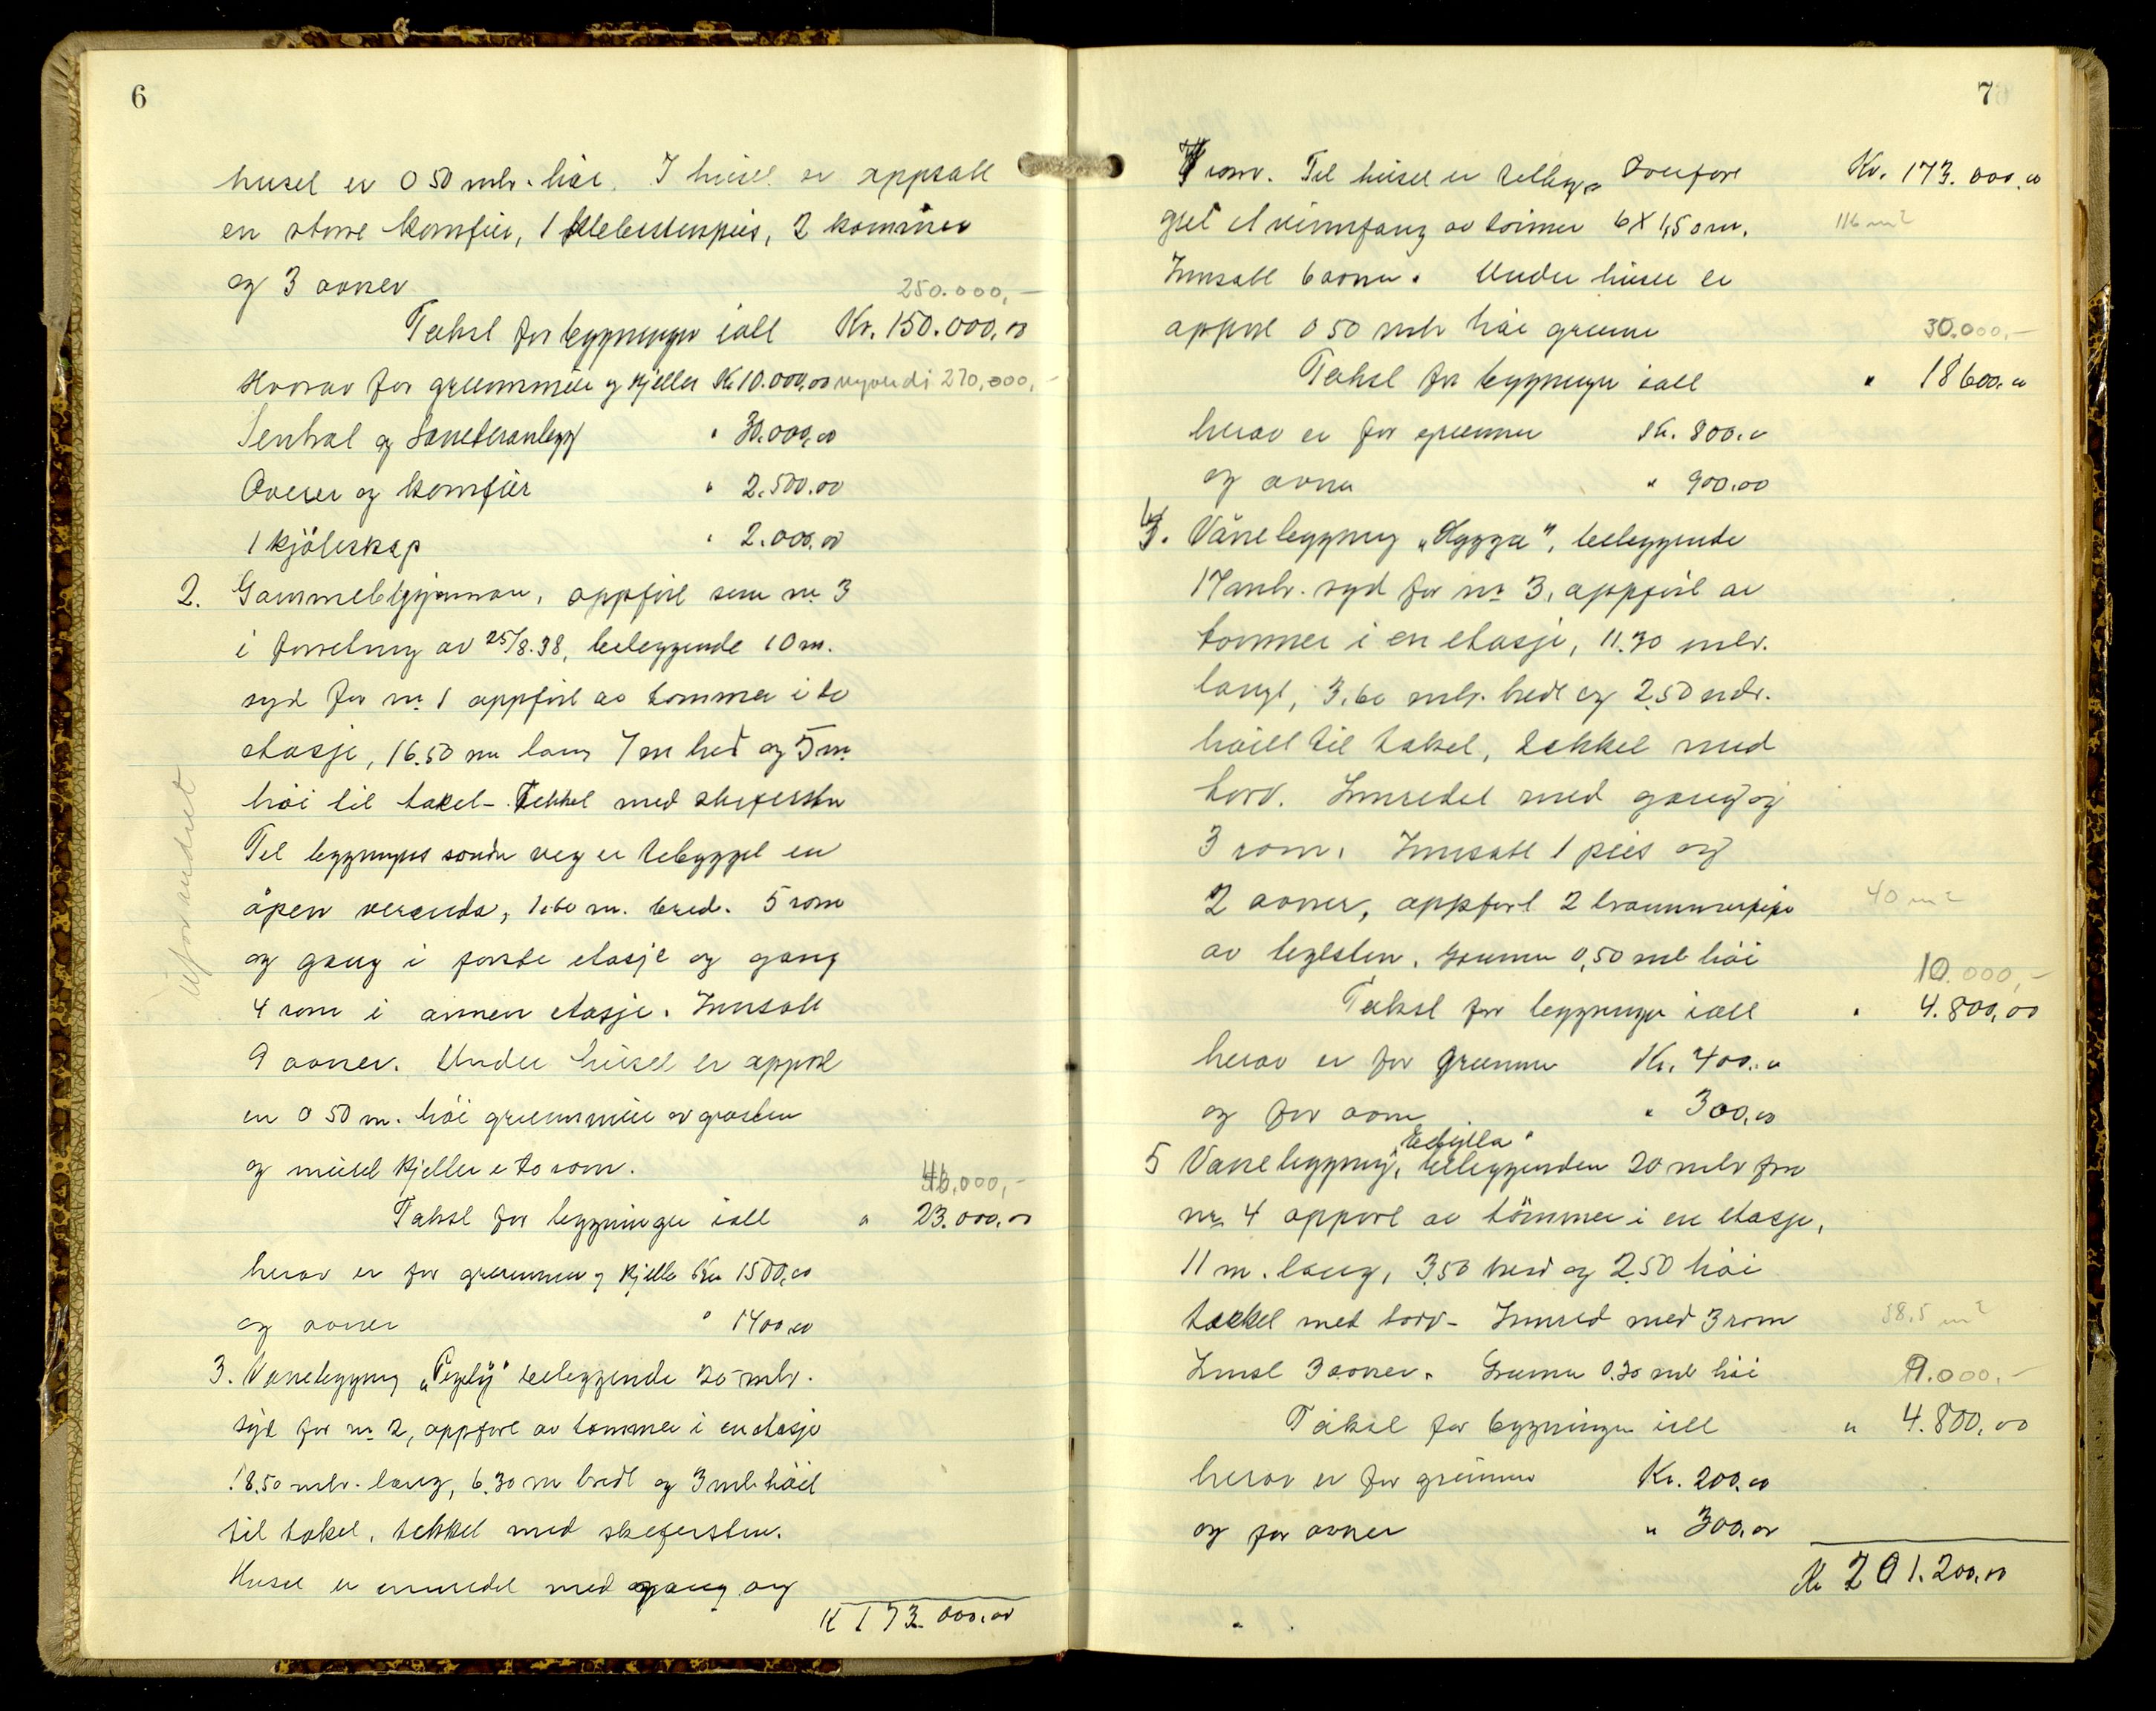 6
huset er 0 50 mtr. høi. I huset er oppsatt
en større komfür, 1 klebersteinspeis, 2 kaminer
og 3 ovner
250.000,-
Takst for bygningen ialt Kr. 150.000,00
Hvorav for grunnmür og kjeller Kr 10.000,00 nyverdi 270,000,-
Sentral og Saneteranlegg " 30.000,00
Ovner og komfür " 2.500.00
1 kjöleskap " 2.000,00
2. Gammelbygningen, oppfört som nr 3
i forretning av 25/8.38, beleggende 10 m.
syd for nr 1 oppfört av tømmer i to
etasje, 16.50 m lang 7 m bred og 5 m
høi til taket - Tekket med skiferstein
Til bygningens søndre veg er tebygget en
åpen veranda, 1.60 m. bred. 5 rom
og gang i første etasje og gang
4 rom i annen etasje. Innsatt
9 ovner. Under huset er oppført
en 0 50 m. høi grunnmür av gråstein
og müret kjeller e to rom.
46,000,-
Takst for bygningen ialt " 23.000,00
herav er for grunnmur og kjeller Kr 1500,00
og ovner " 1400,00
3. Vånebygning „Peply" beleggende 20 mtr.
syd for nr 2, oppført av tømmer i en etasje
18.50 mtr. lang, 6.30 m bredt og 3 mtr. høit
til taket, tekket med skiferstein.
Huset er innredet med gang og
K 173.000,00
Uforandret
7
7 rom. Til huset er tilbyg- Overført Kr. 173.000,00
get et vinnfang av tømmer 6 X 1,50 m. 116 m2
Innsatt 6 ovner. Under huset er
oppført 0 50 mtr høi grunnmur
30.000,-
Takst for bygningen ialt " 18600,00
herav er for grunnmur Kr. 800.00
og ovner " 900.00
4. Vånebygning „Hygga", beleggende
17 mtr. syd for nr 3, oppført av
tømmer i en etasje, 11.30 mtr.
langt, 3.60 mtr. bredt og 2.50 mtr.
høitt til taket, tekket med
torv. Innredet med gang og
3 rom. Innsatt 1 peis og
2 ovner, oppført 2 brannmurpipe
40 m2
av teglstein. Grunnmur 0,50 mtr høi
10.000,-
Takst for bygningen ialt " 4.800,00
herav er for grunnmur Kr. 400.00
og for ovner " 300,00
5 Vånebygning, „Edfjella" beleggenden 20 mtr fra
nr. 4 oppført av tømmer i en etasje,
11 m. lang, 3.50 bred og 2.50 høi
tekket met torv - Innred med 3 rom 38,5 m2
Innst 3 ovner. Grunnmur 0.30 mtr høi 9.000,-
Takst for bygningen ialt " 4.800,00
herav er for grunnmur Kr. 200.00
og for ovner " 300,00
Kr 201.200,00